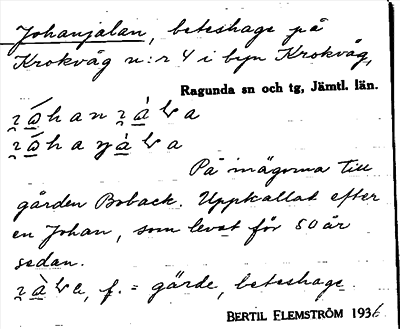 Johanjälan, beteshage på
Krokvåg n:r 4 i byn Krokvåg,
Ragunda sn och tg, Jämtl. län.
På inägorna till
gården Boback. Uppkallat efter
en Johan, som levat för 50 år
sedan.
f. = gärde, beteshage.
BERTIL FLEMSTRÖM 1936